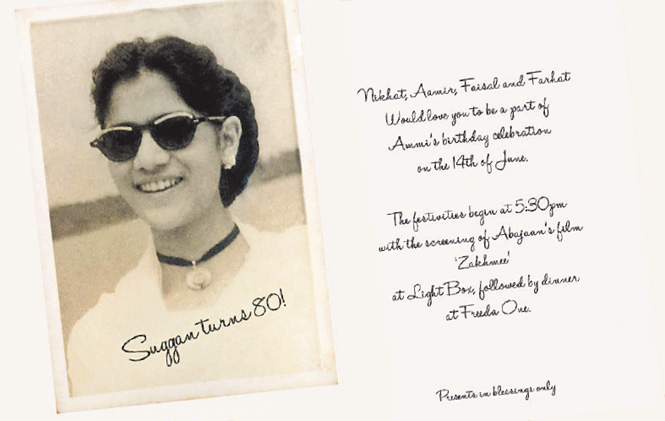 Suggan turns 80!
Nikhat, Aamir, Faisal and Farhat
Would love you to be a part of
Ammi's birthday celebration
on the 14th of June.
The festivities begin at 5:30pm
with the screening of Abajaan's film
'Zakhmee'
at Light Box, followed by dinner
at Freeda One.
Presents in blessings only